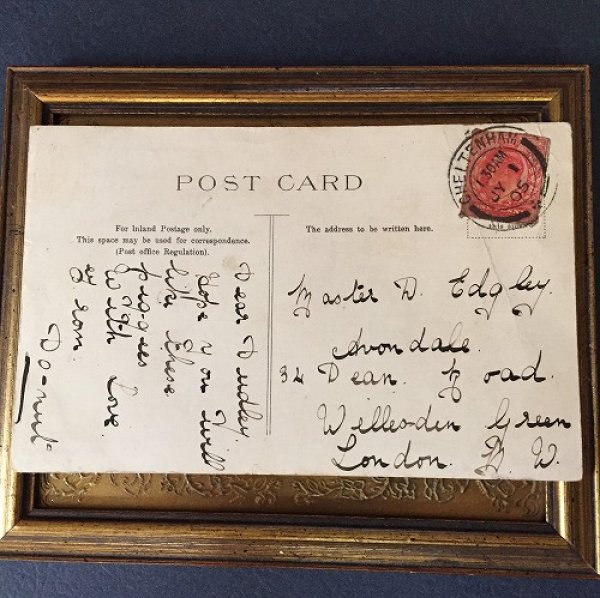 POST CARD
For Inland Postage only.
This space may be used for correspondence.
(Post office Regulation).
The address to be written here.
CHELTENHAM
1.30AM
JY 1
05
this
Dear Dudley
Hope you will
like these
piggies
With Love
from
Do-nut
Master D. Edgley.
Avondale.
34 Dean. Road.
Willesden Green
London. N. W.